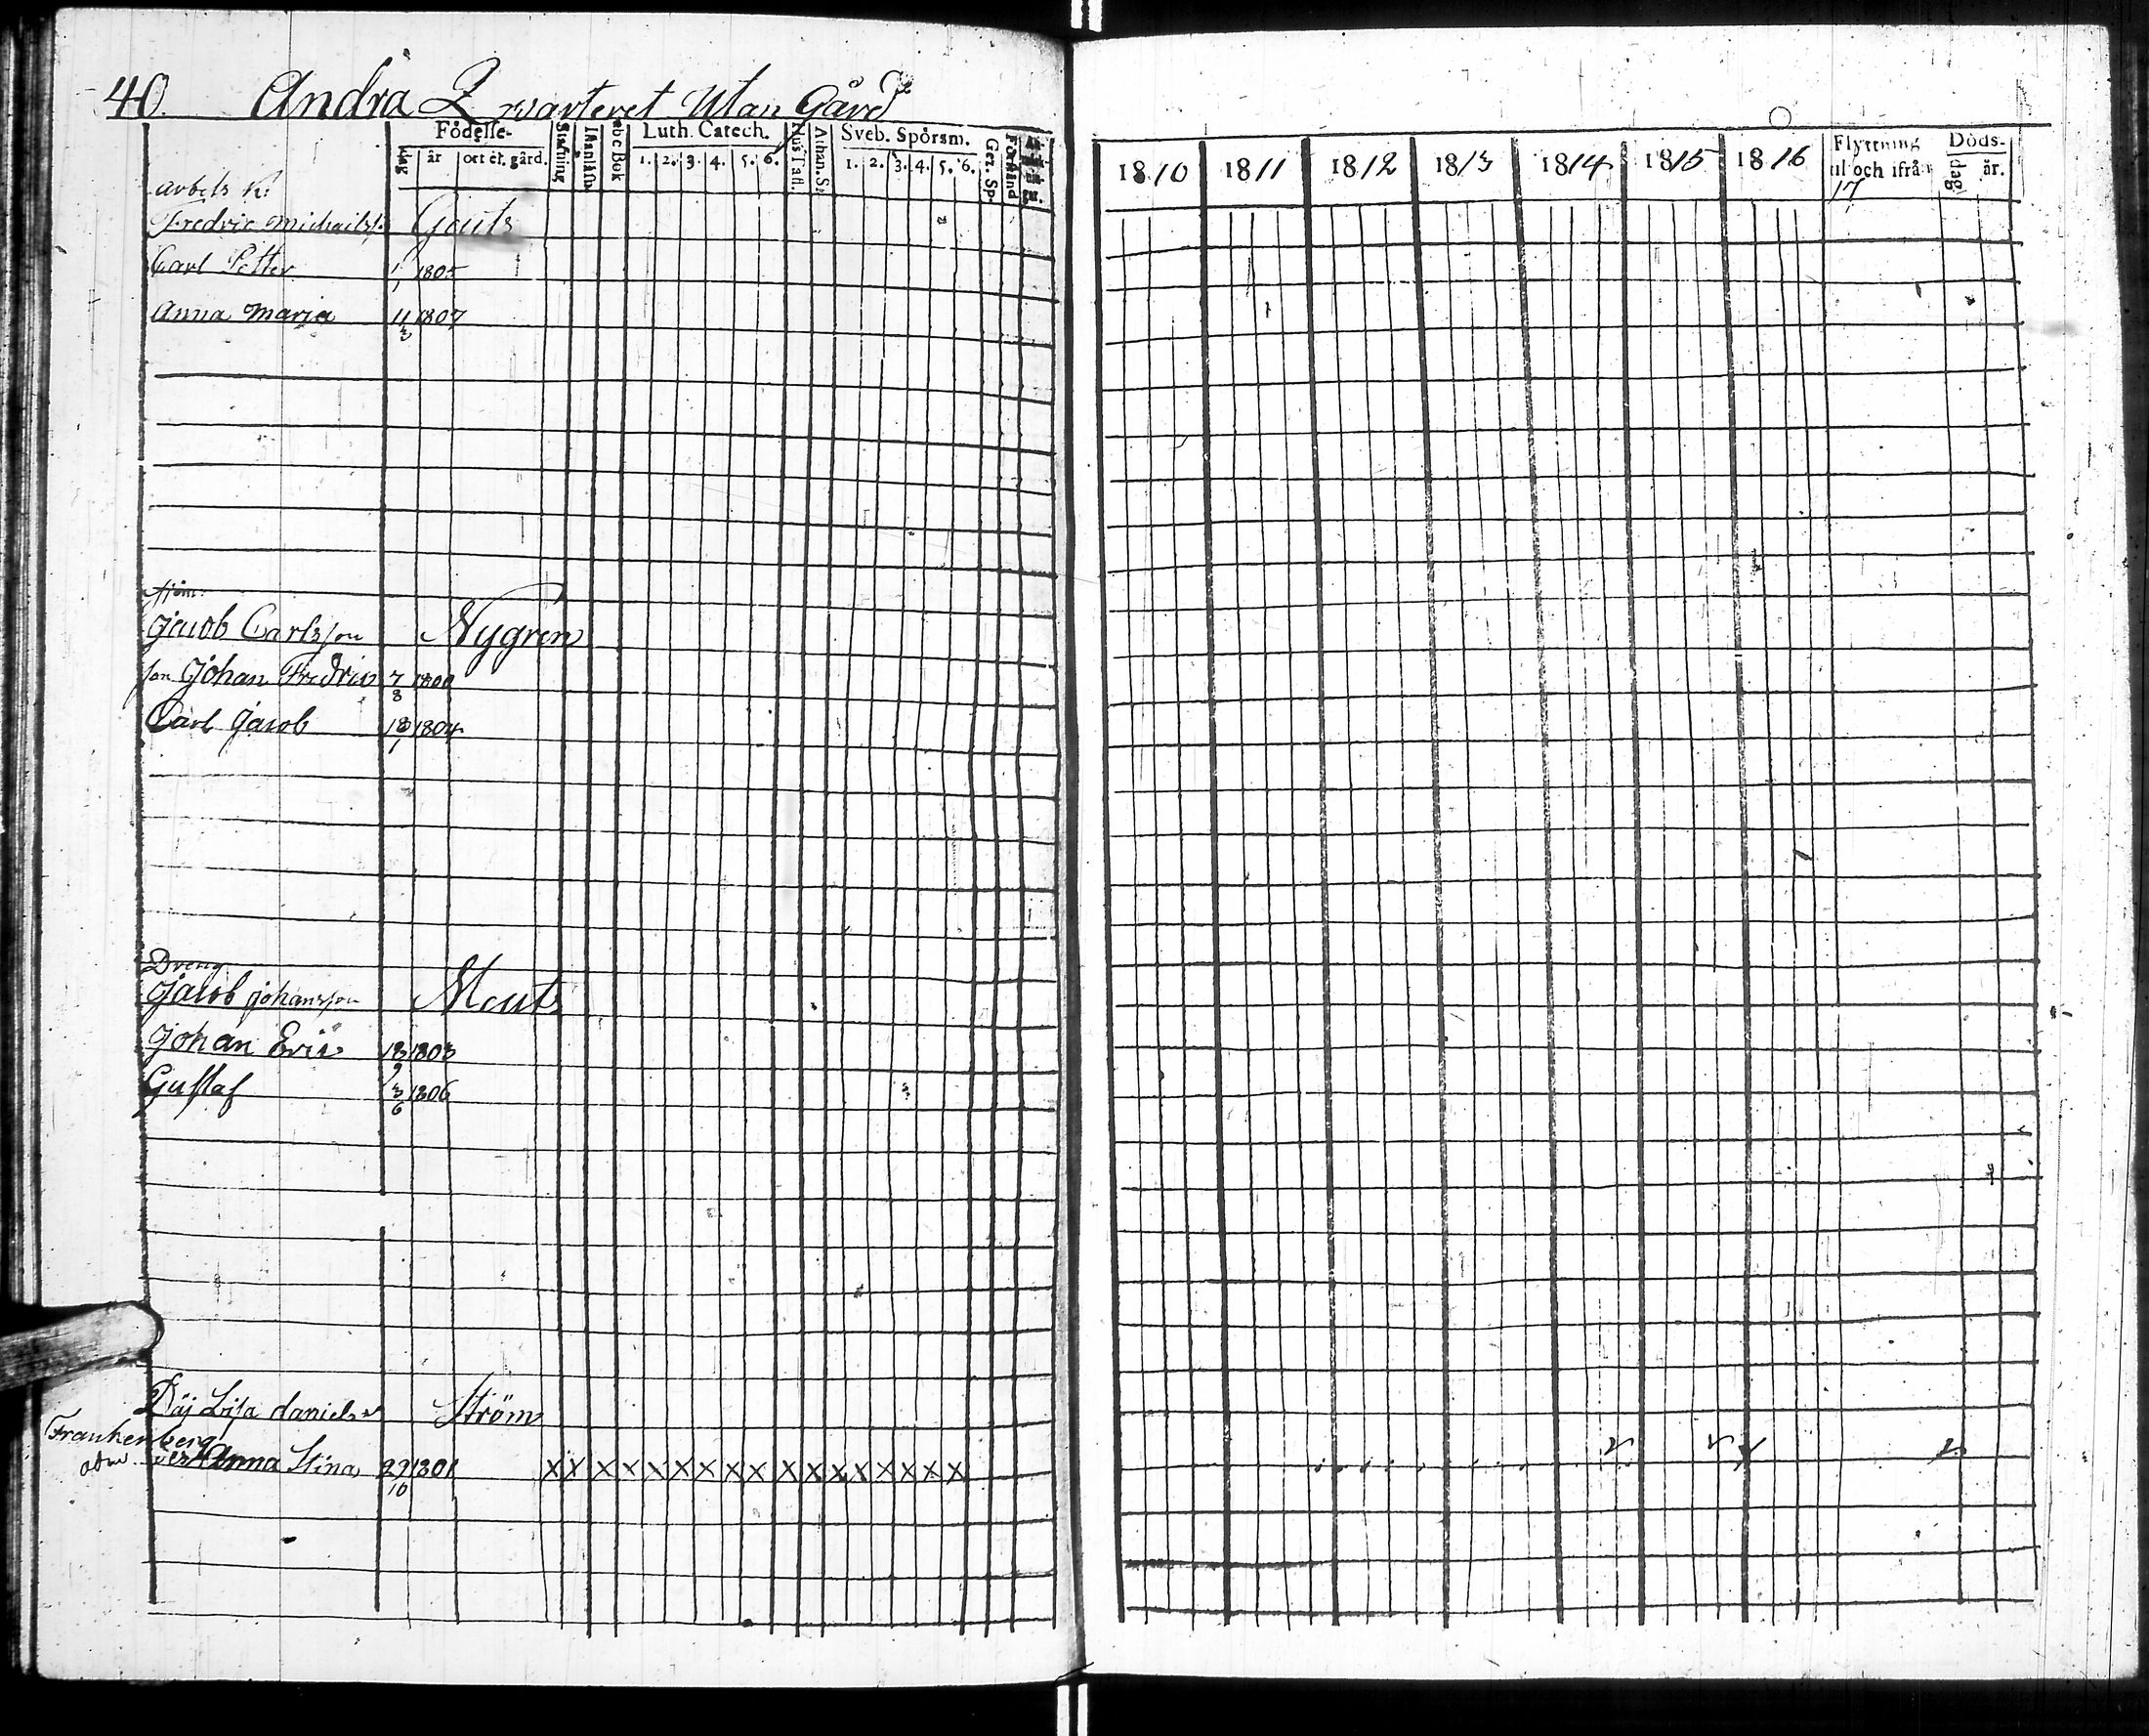 40. Andra Qwarteret Utan Gård
Födelse- Stafning Innanläsn. Abc Bok Luth. Catech. Hus Tafl. Athan. S. Sveb. Spörsm. Gez. Sp. Förstånd
dag år ort el. gård. 1. 2. 3. 4. 5. 6. 1. 2. 3. 4. 5. 6.
1810 1811 1812 1813 1814 1815 1816 Flyttning til och ifrån Döds-
17 dag år.
arbets K.
Fredric Michaelss. Gouts
Carl Petter 1 1805
Anna Maria 11/3 1807
Jacob Carlsson Nygren
son Johan Fredric 7/8 1800
Carl Jacob 18/1 1804
Dreng
Jacob Johansson Ment
Johan Eric 18/9 1803
Gustaf 3/6 1806
Lisa daniels Ström
Frankenberg
Anna Stina 29/10 1801 x x x x x x x x x x x x x x x x x